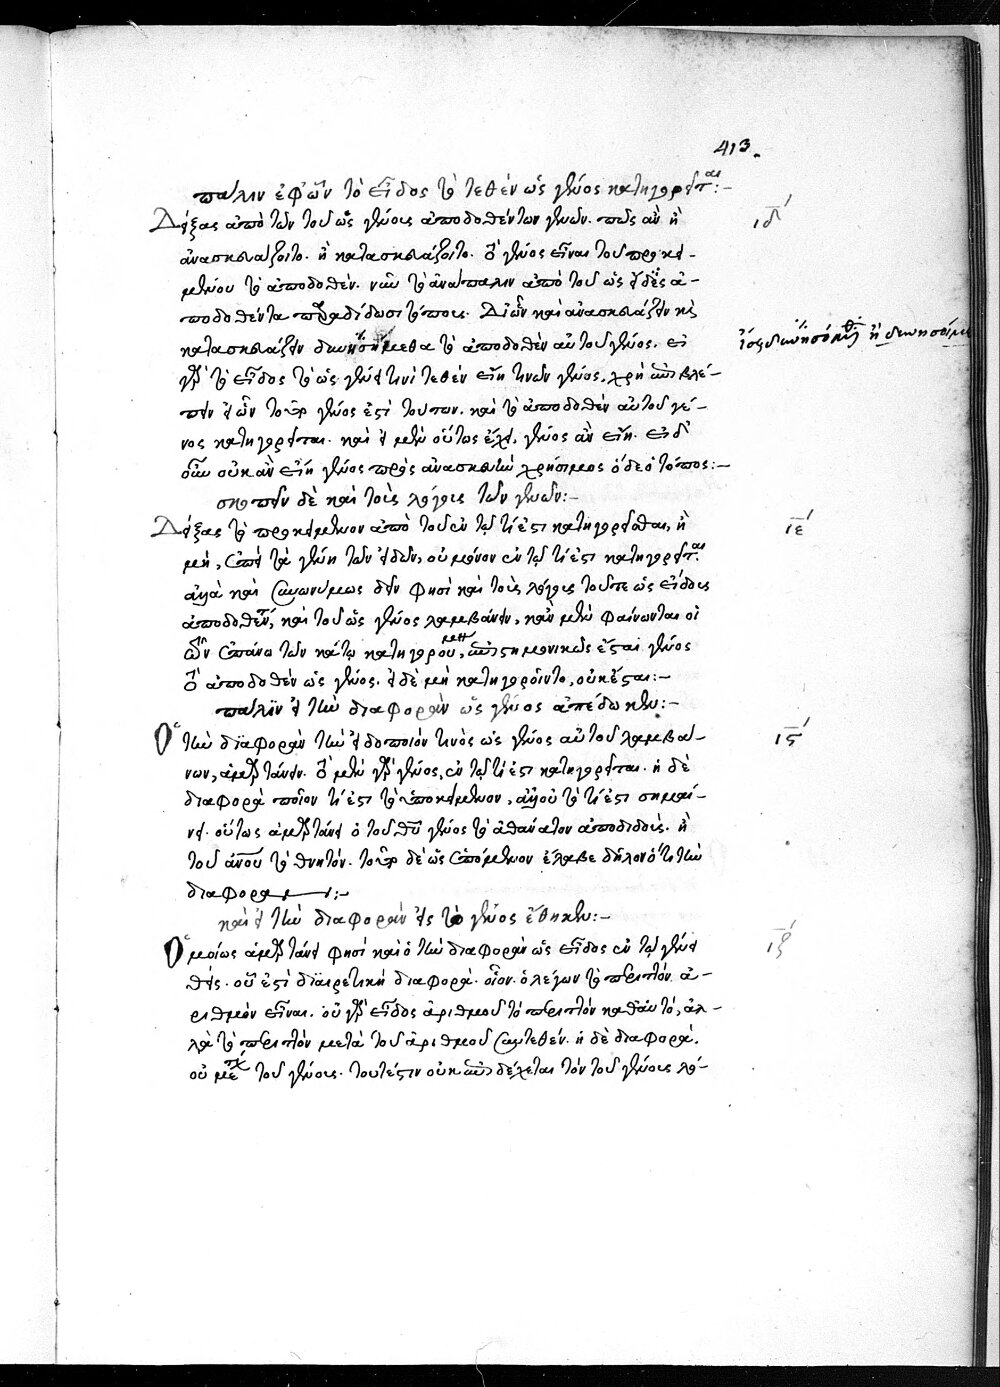 413.
πάλιν ἐφ' ὧν τὸ εἶδος τὸ τεθὲν ὡς γένος κατηγορεῖται:-
Δείξας ἀπὸ τῶν τοῦ ὡς γένους ἀποδοθέντων γενῶν. πῶς ἂν ἢ
ιδ'
ἀνασκευάζοιτο. ἢ κατασκευάζοιτο. ὃ γένος εἶναι τοῦ προκει-
μένου τὸ ἀποδοθέν. νῦν τὸ ἀνάπαλιν ἀπὸ τοῦ ὡς εἶδος ἀ-
ποδοθέντα παραδίδωσι τόπους. Δι' ὧν καὶ ἀνασκευάζειν καὶ
κατασκευάζειν δυνησόμεθα τὸ ἀποδοθὲν αὐτοῦ γένος. εἰ
ἴσως δυνησόμεθα ἢ
γὰρ τὸ εἶδος τὸ ὡς γένει τινὶ τεθὲν εἴη τινῶν γένος. χρὴ ἀποβλέ-
πειν εἰ ὧν τοῦτο γένος ἐστὶ τούτων. καὶ τὸ ἀποδοθὲν αὐτοῦ γέ-
νος κατηγορεῖται. καὶ εἰ μὲν οὕτως ἔχει. γένος ἂν εἴη. εἰ δ'
οὖν οὐκ ἂν εἴη γένος πρὸς ἀνασκευὴν χρήσιμος ὅδε ὁ τόπος:-
σκοπεῖν δὲ καὶ τοὺς λόγους τῶν γενῶν:-
Δείξας τὸ προκείμενον ἀπὸ τοῦ ἐν τῷ τί ἐστι κατηγορεῖσθαι, ἢ
ιε'
μή, ἐπεὶ τὰ γένη τῶν εἰδῶν, οὐ μόνον ἐν τῷ τί ἐστι κατηγορεῖται
ἀλλὰ καὶ συνωνύμως δεῖν φησὶ καὶ τοὺς λόγους τοῦ τε ὡς εἴδους
ἀποδοθέντος, καὶ τοῦ ὡς γένος λαμβάνειν, κἂν μὲν φαίνωνται οἱ
τῶν ἐπάνω τῶν κάτω κατηγορούμενοι, ἐπιστημονικῶς ἔσται γένος
ὃ ἀποδοθὲν ὡς γένος. εἰ δὲ μὴ κατηγοροῖντο, οὐκ ἔσται:-
πάλιν εἰ τὴν διαφορὰν ὡς γένος ἀπέδωκεν:-
Ὁ τὴν διαφορὰν τὴν εἰδοποιόν τινος ὡς γένος αὐτοῦ λαμβά-
ις'
νων, ἁμαρτάνει. ὃ μὲν γὰρ γένος, ἐν τῷ τί ἐστι κατηγορεῖται. ἡ δὲ
διαφορὰ ποῖον τί ἐστι τὸ ὑποκείμενον, ἀλλ' οὐ τὸ τί ἐστι σημαί-
νει. οὕτως ἁμαρτάνει ὁ τοῦ θεοῦ γένος τὸ ἀθάνατον ἀποδιδούς. ἢ
τοῦ ἀνου τὸ θνητόν. τοῦτο δὲ ὡς ἑπόμενον ἔλαβε δηλονότι τὴν
διαφοράν:-
καὶ εἰ τὴν διαφορὰν εἰς τὸ γένος ἔθηκεν:-
Ὁμοίως ἁμαρτάνει φησὶ καὶ ὁ τὴν διαφορὰν ὡς εἶδος ἐν τῷ γένει
ιζ'
θείς. οὗ ἐστὶ διαιρετικὴ διαφορά. οἷον. ὁ λέγων τὸ περιττὸν ἀ-
ριθμὸν εἶναι. οὐ γὰρ εἶδος ἀριθμοῦ τὸ περιττὸν καθ' αὑτό, ἀλ-
λὰ τὸ περιττὸν μετὰ τοῦ ἀριθμοῦ συντεθέν. ἡ δὲ διαφορά.
οὐ μετέχει τοῦ γένους. τουτέστιν οὐκ ἐπιδέχεται τὸν τοῦ γένους λό-